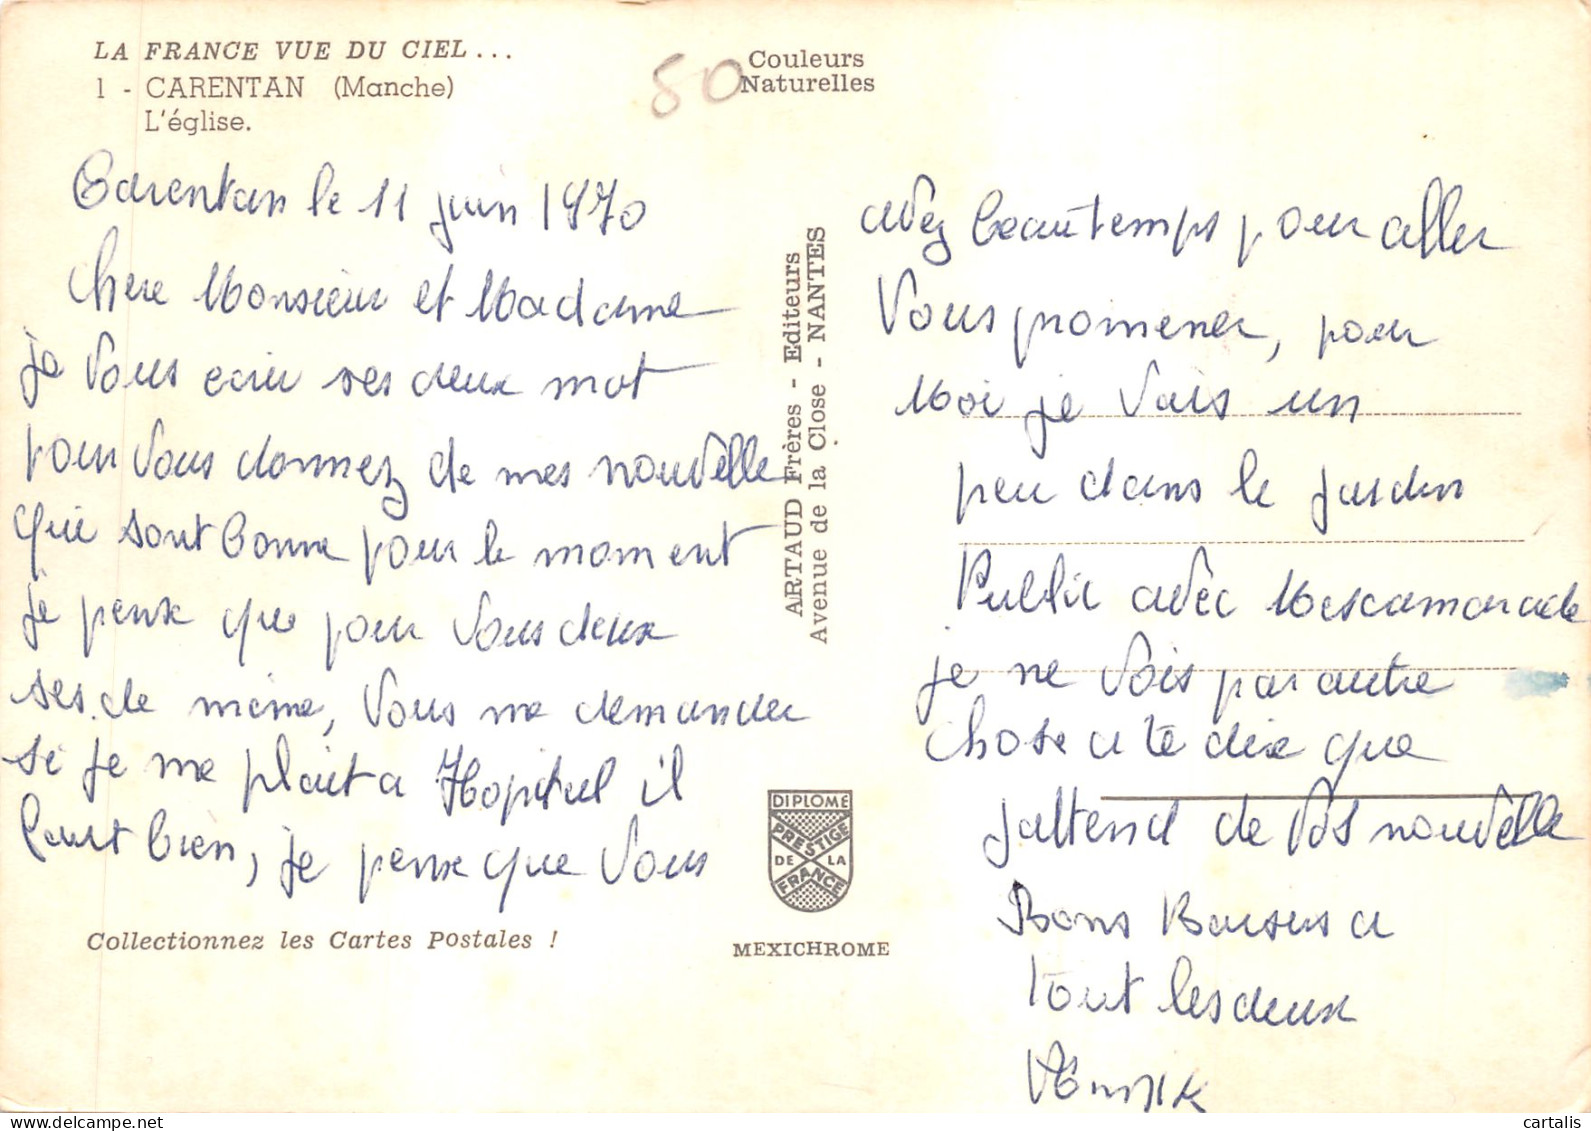 LA FRANCE VUE DU CIEL...
1 - CARENTAN (Manche)
L'église.
50
Couleurs
Naturelles
Carentan le 11 juin 1970
Chere Monsieur et Madame
je Vous ecrir ses deux mot
pour Vous donnez de mes nouvelle
qui sont bonne pour le moment
je pense que pour Vous deux
ses de mème, Vous me demander
si je me plait a Hopital il
faut bien, je pense que Vous
ARTAUD Frères - Editeurs
Avenue de la Close - NANTES
DIPLOME
PRESTIGE
DE LA
FRANCE
Collectionnez les Cartes Postales !
MEXICHROME
avez beautemps pour aller
Vous promener, pour
Moi je Vais un
peu dans le jardin
Public avec Mescamarade
je ne Vois par autre
chose a te dire que
jattend de Vos nouvelle
Bons Baisers a
tout lesdeux
cartalis.com
cartalis